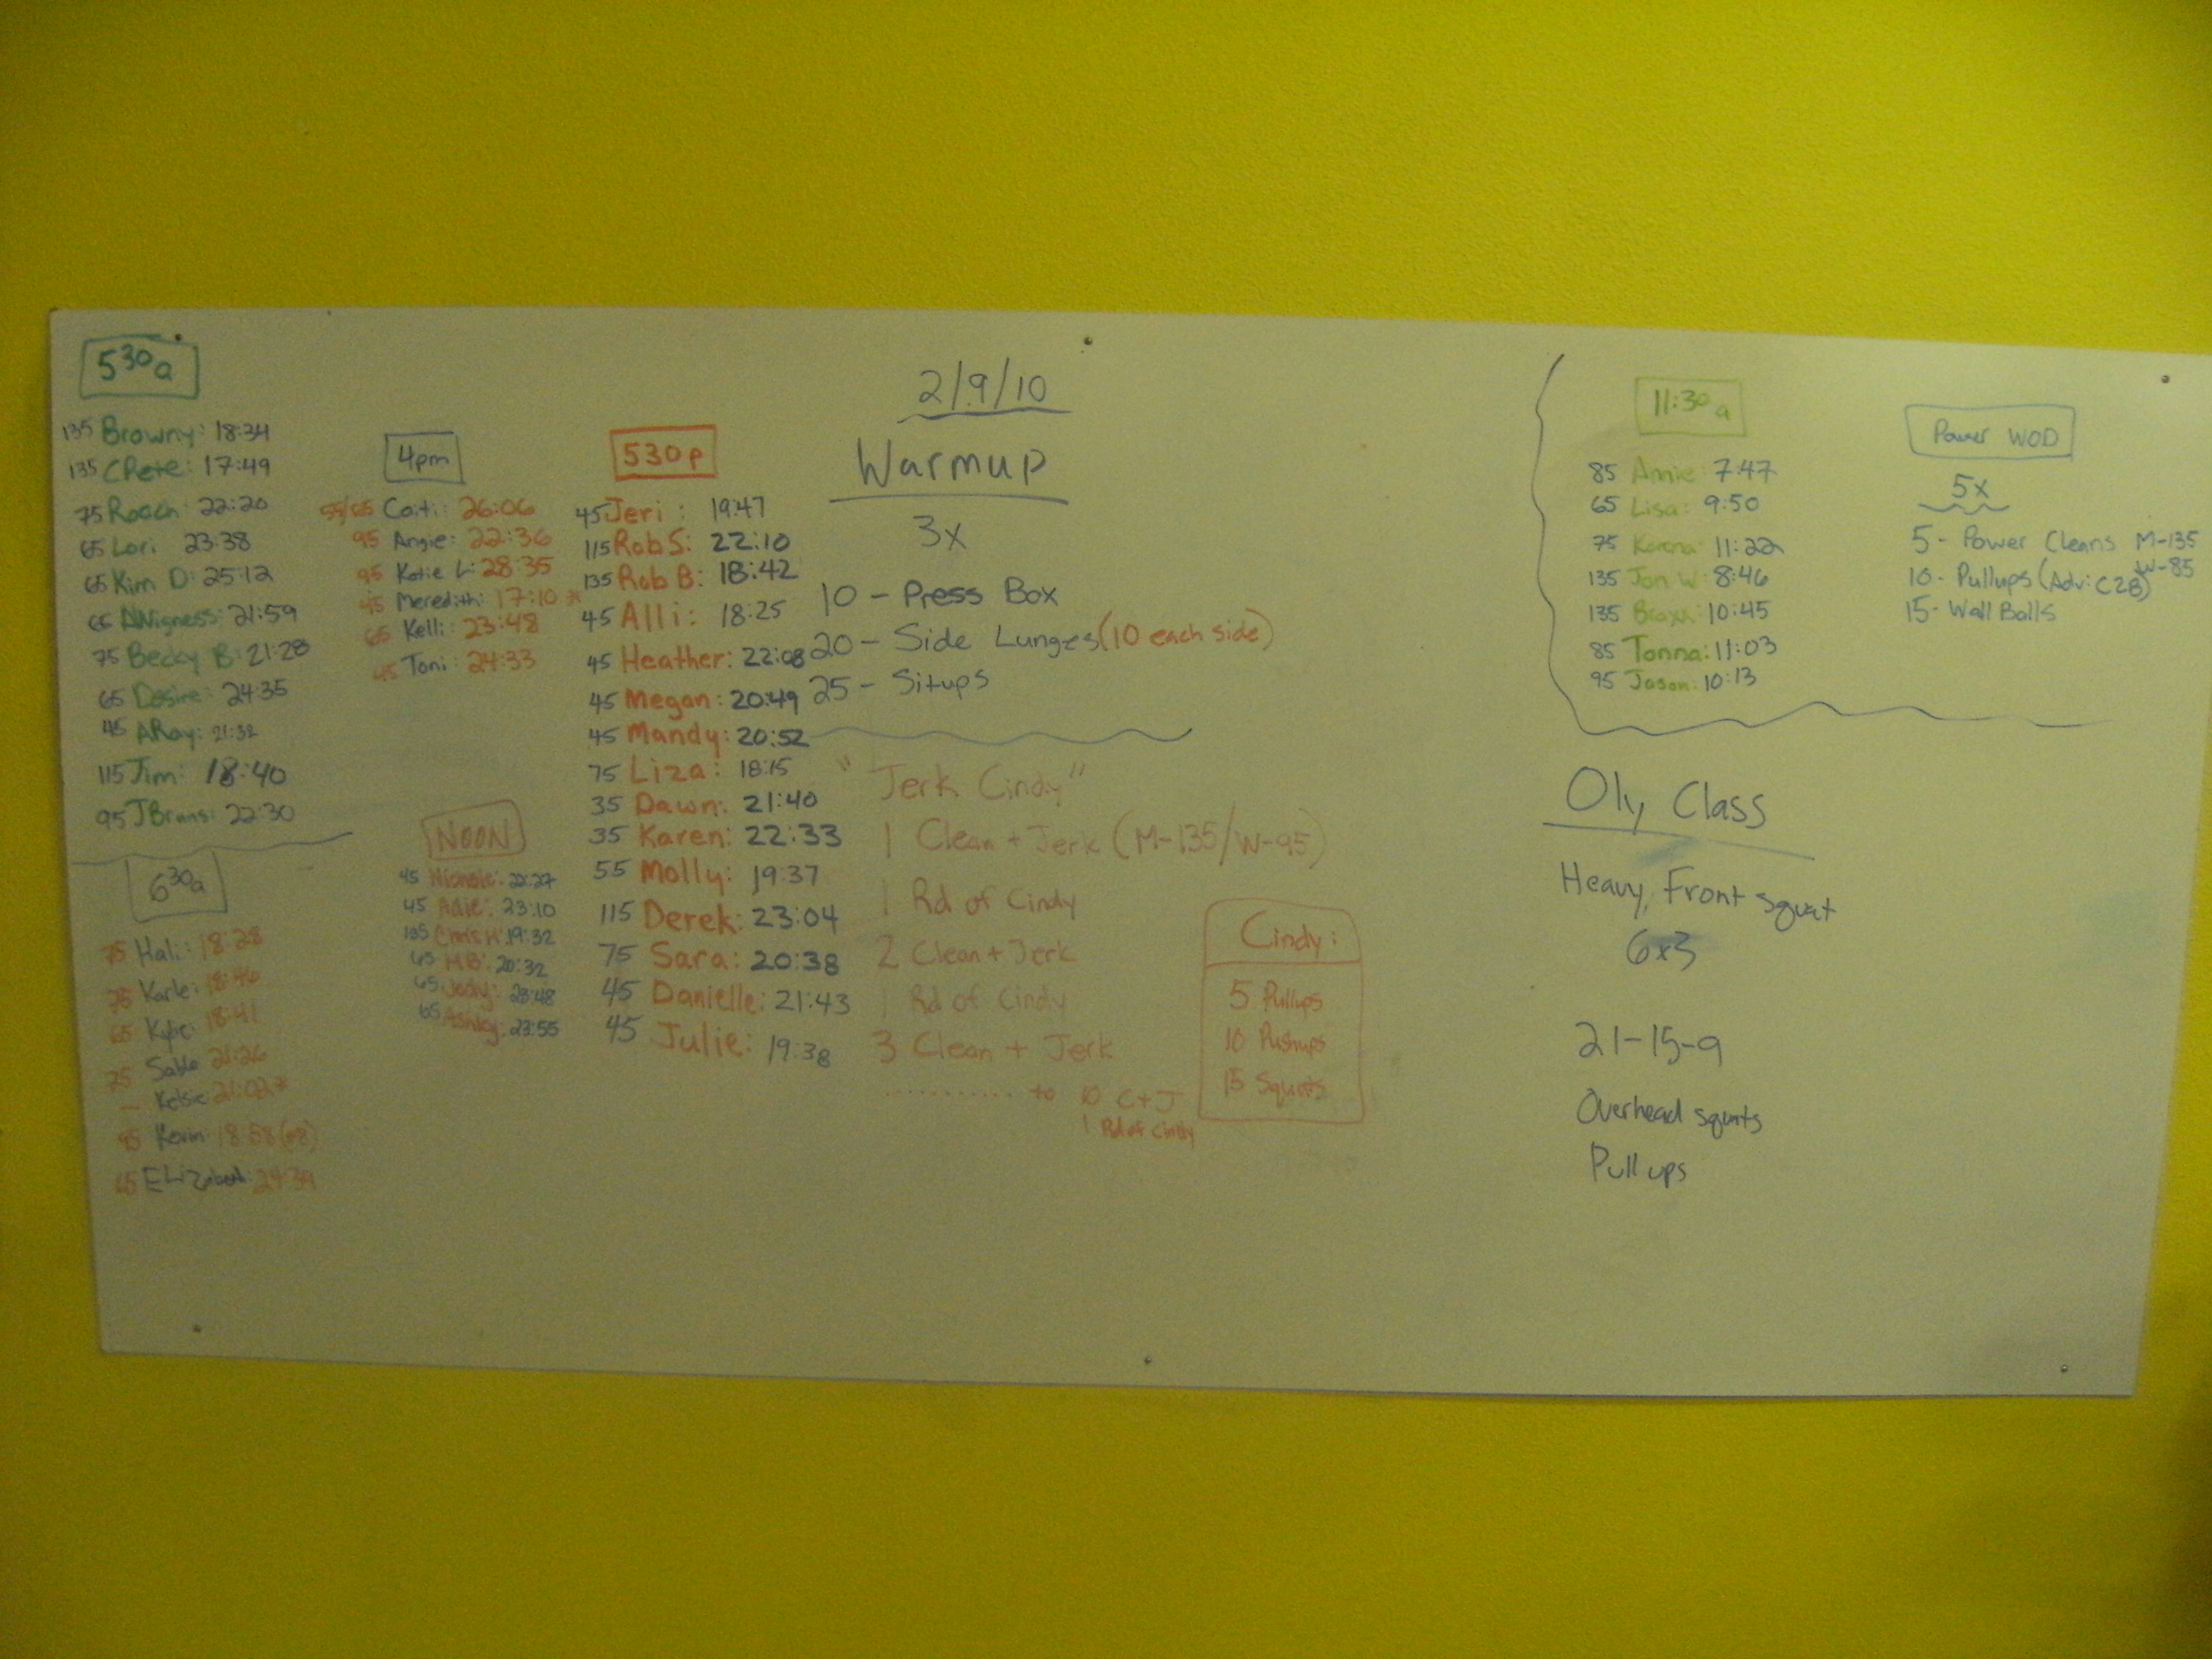 5 30 a
135 Browny: 18:34
135 CPete: 17:49
75 Roach: 22:20
65 Lori 23:38
65 Kim D: 25:12
65 AWigness: 21:59
75 Becky B: 21:28
65 Desire: 24:35
45 ARay: 21:32
115 Jim: 18:40
95 JBruns: 22:30
6 30 a
75 Hali: 18:28
75 Karle: 18:46
65 Kylie: 18:41
75 Sable 21:26
- Kelsie 21:02*
95 Kevin: 18:58
Elizabeth: 24:39
4pm
Caiti: 26:06
95 Angie: 22:36
95 Katie L: 28:35
45 Meredith: 17:10 *
65 Kelli: 23:48
45 Toni: 24:33
NOON
45 Nichole: 22:27
45 Adie: 23:10
135 Chris H: 19:32
65 MB: 20:32
65 Jody: 23:48
65 Ashley: 23:55
530p
45 Jeri: 19:47
115 Rob S: 22:10
135 Rob B: 18:42
45 Alli: 18:25
45 Heather: 22:08
45 Megan: 20:49
45 Mandy: 20:52
75 Liza: 18:15
35 Dawn: 21:40
35 Karen: 22:33
55 Molly: 19:37
115 Derek: 23:04
75 Sara: 20:38
45 Danielle: 21:43
45 Julie: 19:38
2/9/10
Warmup
3x
10 - Press Box
20 - Side Lunges (10 each side)
25 - Situps
"Jerk Cindy"
1 Clean + Jerk (M-135/W-95)
1 Rd of Cindy
2 Clean + Jerk
1 Rd of Cindy
3 Clean + Jerk
............ to 10 C+J
1 Rd of Cindy
Cindy:
5 Pullups
10 Pushups
15 Squats
11:30 a
85 Annie: 7:47
65 Lisa: 9:50
75 Karena: 11:22
135 Jon W: 8:46
135 Braxx: 10:45
85 Tonna: 11:03
95 Jason: 10:13
Power WOD
5x
5 - Power Cleans M-135
W-85
10 - Pullups (Adv: C2B)
15 - Wall Balls
Oly Class
Heavy, Front squat
6x3
21-15-9
Overhead squats
Pull ups